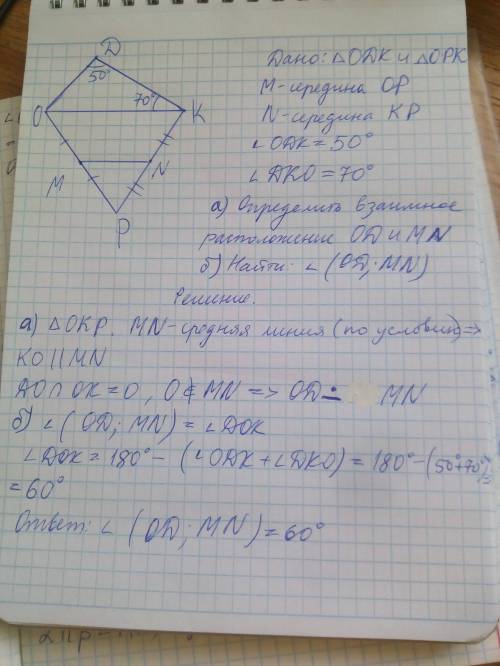 D
50°
70°
O
K
M
N
P
Дано: △ODK и △OPK
M-середина OP
N-середина KP
∠ODK = 50°
∠DKO = 70°
а) Определить взаимное
расположение OD и MN
б) Найти: ∠(OD; MN)
Решение.
а) △OKP. MN-средняя линия (по условию) =>
KO || MN
DO ∩ OK = O, O ∉ MN => OD ∸ MN
б) ∠(OD; MN) = ∠DOK
∠DOK = 180° - (∠ODK + ∠DKO) = 180° - (50°+70°)=
= 60°
Ответ: ∠(OD; MN) = 60°